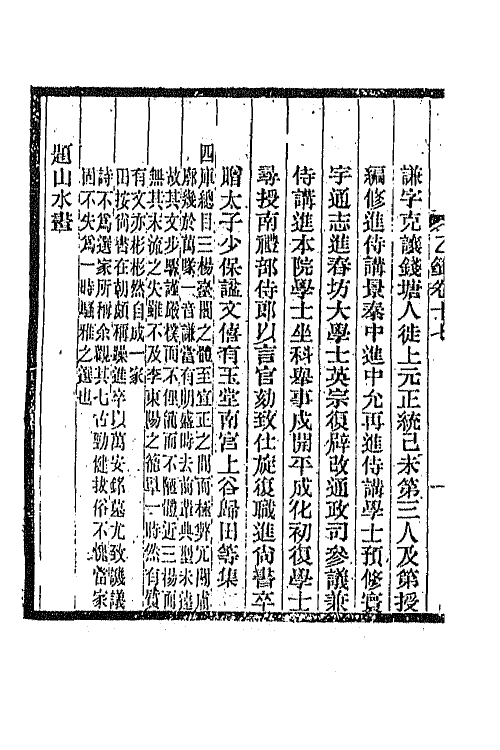 乙籤卷十七
謙字克讓錢塘人徙上元正統己未第三人及第授
編修進侍講景泰中進中允再進侍講學士預修寰
宇通志進春坊大學士英宗復辟改通政司參議兼
侍講進本院學士坐科舉事戍開平成化初復學士
尋授南禮部侍郎以言官劾致仕旋復職進尚書卒
贈太子少保諡文僖有玉堂南宮上谷歸田等集
四庫總目三楊臺閣之體至宣正之間而極弊冗闒膚
廓幾於萬喙一音謙當有明盛時去前輩典型未遠
故其文步驟謹嚴樸而不俚簡而不陋體近三楊而
無其末流之失雖不及李東陽之籠罩一時然有質
有文亦彬彬然自成一家
田按尚書在朝頗稱躁進卒以萬安銘墓尤致譏議
詩不為選家所稱余觀其七古勁健拔俗不愧當家
固不失為一時騷雅之選也
題山水畫